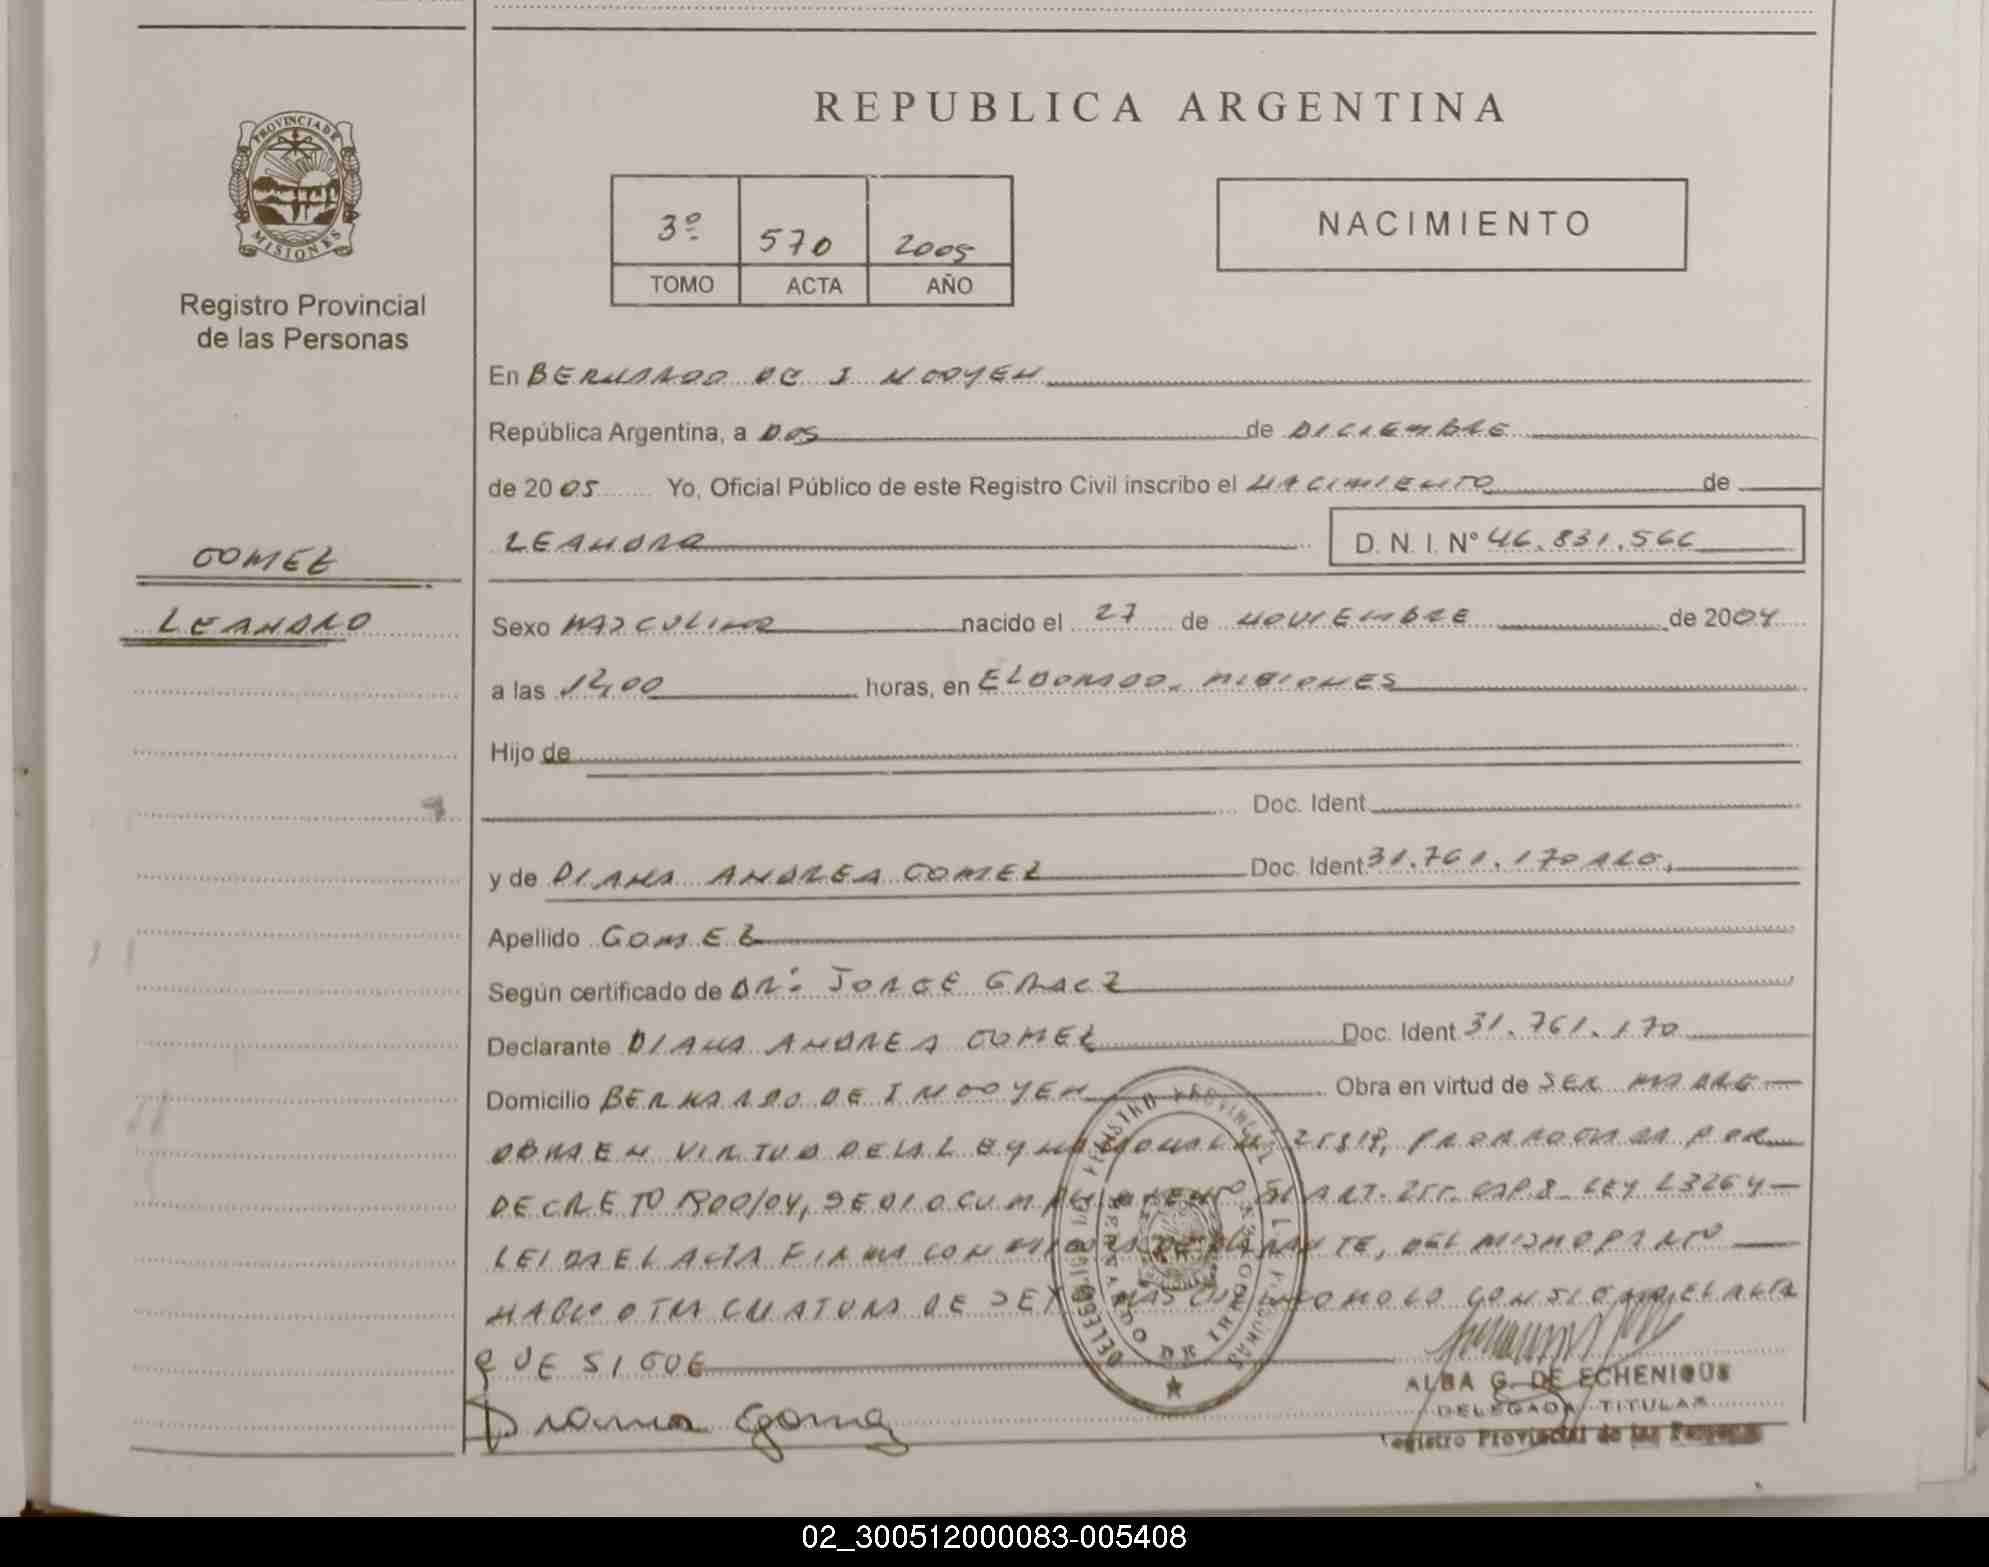 REPUBLICA ARGENTINA
PROVINCIA DE MISIONES
Registro Provincial
de las Personas
3º 570 2005
TOMO ACTA AÑO
NACIMIENTO
En BERNARDO DE I RIGOYEN
República Argentina, a DOS de DICIEMBRE
de 2005 Yo, Oficial Público de este Registro Civil inscribo el NACIMIENTO de
LEANDRO D. N. I. Nº 46.831.566
GOMEZ
LEANDRO
Sexo MASCULINO nacido el 27 de NOVIEMBRE de 2004
a las 12,00 horas, en ELDORADO, MISIONES
Hijo de
Doc. Ident
y de DIANA ANDREA GOMEZ Doc. Ident 31.761.170
Apellido GOMEZ
Según certificado de DR: JORGE
Declarante DIANA ANDREA GOMEZ Doc. Ident 31.761.170
Domicilio BERNARDO DE I RIGOYEN Obra en virtud de SER MADRE
OBRA EN VIRTUD DE LA LEY NACIONAL Nº 25818, PRORROGADA POR
DECRETO 1800/04, SE DIO CUMPLIMIENTO AL ART. 255. CAP 8 LEY 23264
LEIDA EL ACTA FIRMA CON MIGO LA DECLARANTE, DEL MISMO PARTO
NACIO OTRA CRIATURA DE SEXO MASCULINO CONSIGNA EL ACTA
QUE SIGUE
Diana Gomez
DELEGACION
ALBA G. DE ECHENIQUE
DELEGADA TITULAR
Registro Provincial de las Personas
02_300512000083-005408